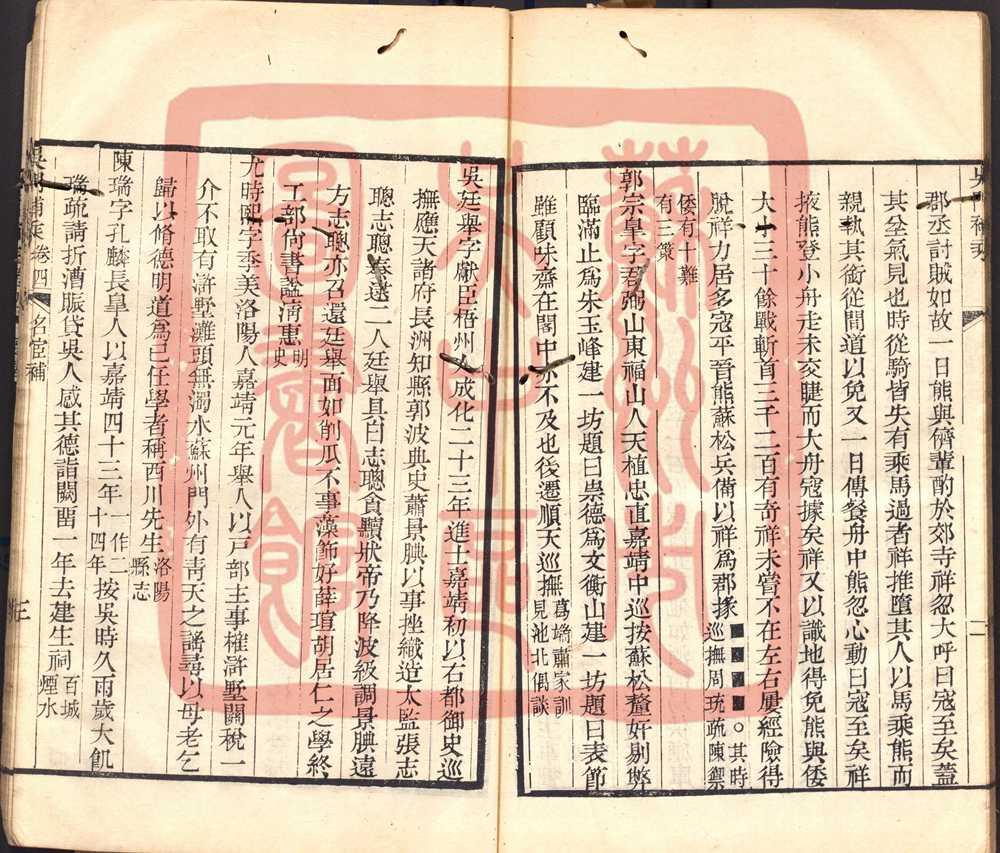 郡丞討賊如故一日熊與儕輩酌於郊寺祥忽大呼曰寇至矣蓋
其坌氣見也時從騎皆失有乘馬過者祥推墮其人以馬乘熊而
親執其銜從間道以免又一日傳餐舟中熊忽心動曰寇至矣祥
掖熊登小舟走未交睫而大舟寇據矣祥又以識地得免熊與倭
大小三十餘戰斬首三千二百有奇祥未嘗不在左右屢經險得
脫祥力居多寇平晉熊蘇松兵備以祥爲郡掾
■■■■○其時
巡撫周珫疏陳禦
倭有十難
有三策
郭宗皐字君弼山東福山人天植忠直嘉靖中巡按蘇松釐奸剔弊
臨滿止爲朱玉峰建一坊題曰崇德爲文衡山建一坊題曰表節
雖顧味齋在閣中亦不及也後遷順天巡撫
葛端肅家訓
見池北偶談
吳廷舉字獻臣梧州人成化二十三年進士嘉靖初以右都御史巡
撫應天諸府長洲知縣郭波典史蕭景腆以事挫織造太監張志
聰志聰奏逮二人廷舉具白志聰貪黷狀帝乃降波級調景腆遠
方志聰亦召還廷舉面如削瓜不事藻飾好薛瑄胡居仁之學終
工部尚書諡淸惠
明
史
尤時熙字季美洛陽人嘉靖元年舉人以戶部主事榷滸墅關稅一
介不取有滸墅灘頭無濁水蘇州門外有靑天之謠尋以母老乞
歸以脩德明道爲己任學者稱西川先生
洛陽
縣志
陳瑞字孔麟長皇人以嘉靖四十三年
一作二
十四年
按吳時久雨歲大飢
瑞疏請折漕賑貸吳人感其德詣闕畱一年去建生祠
百城
煙水
卷四
名宦補